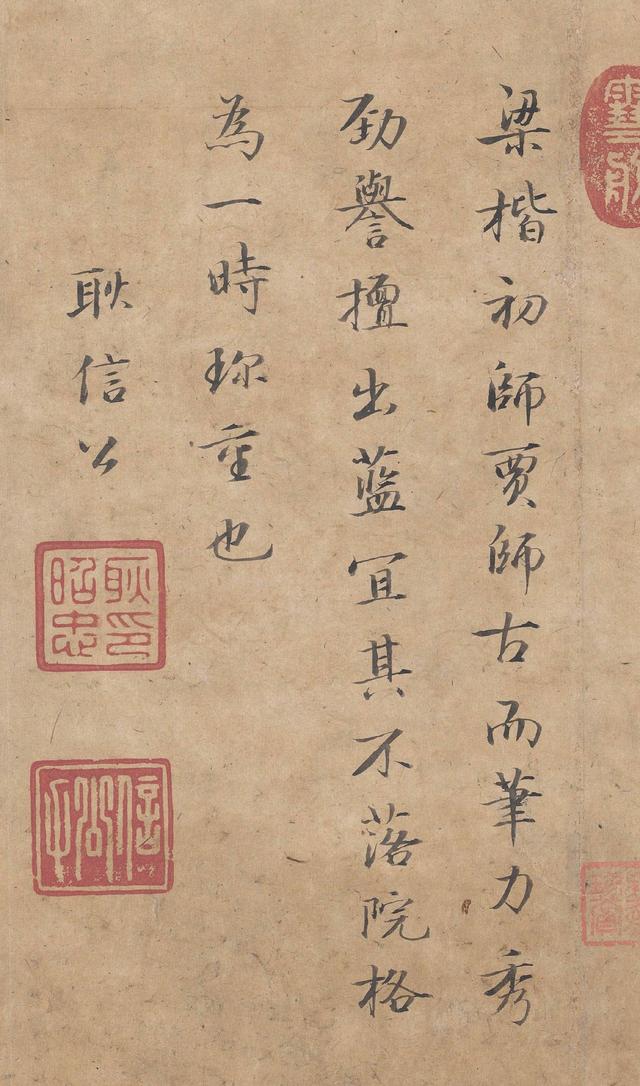 梁楷初師賈師古而筆力秀
勁譽擅出藍宜其不落院格
為一時珎重也
耿信公
耿昭忠印
信公氏